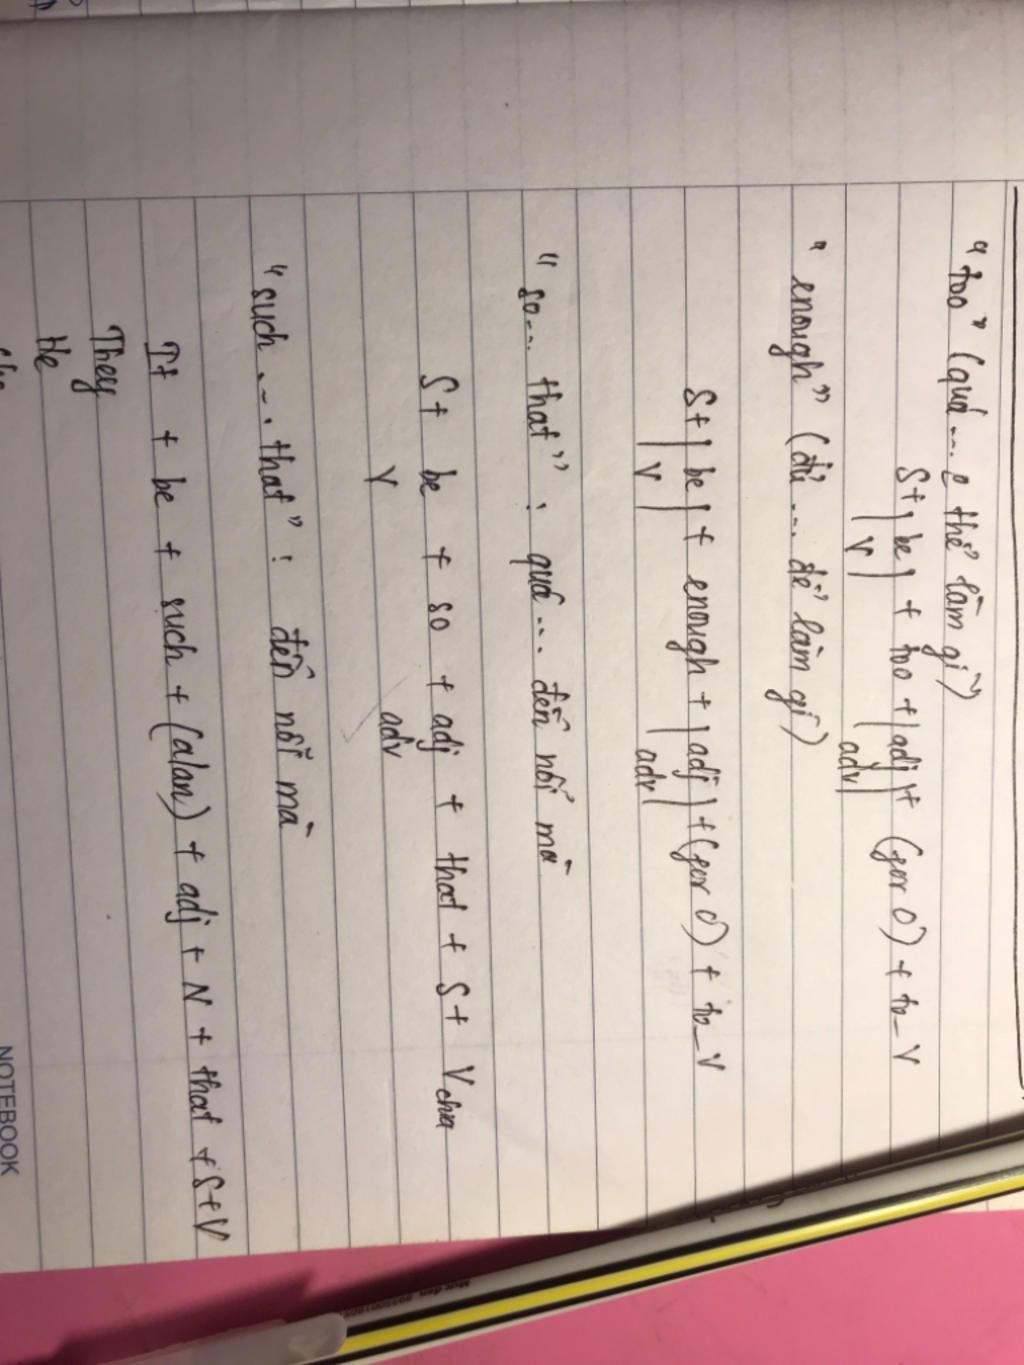 "too" (quá ... o thể làm gì)
S + | be | + too + | adj | + (for O) + to_V
| V | | adv |
"enough" (đủ ... để làm gì)
S + | be | + enough + | adj | + (for O) + to_V
| V | | adv |
"so... that" : quá ... đến nỗi mà
S + be + so + adj + that + S + V chia
V adv
"such ... that" : đến nỗi mà
It + be + such + (a/an) + adj + N + that + S + V
They
He
NOTEBOOK